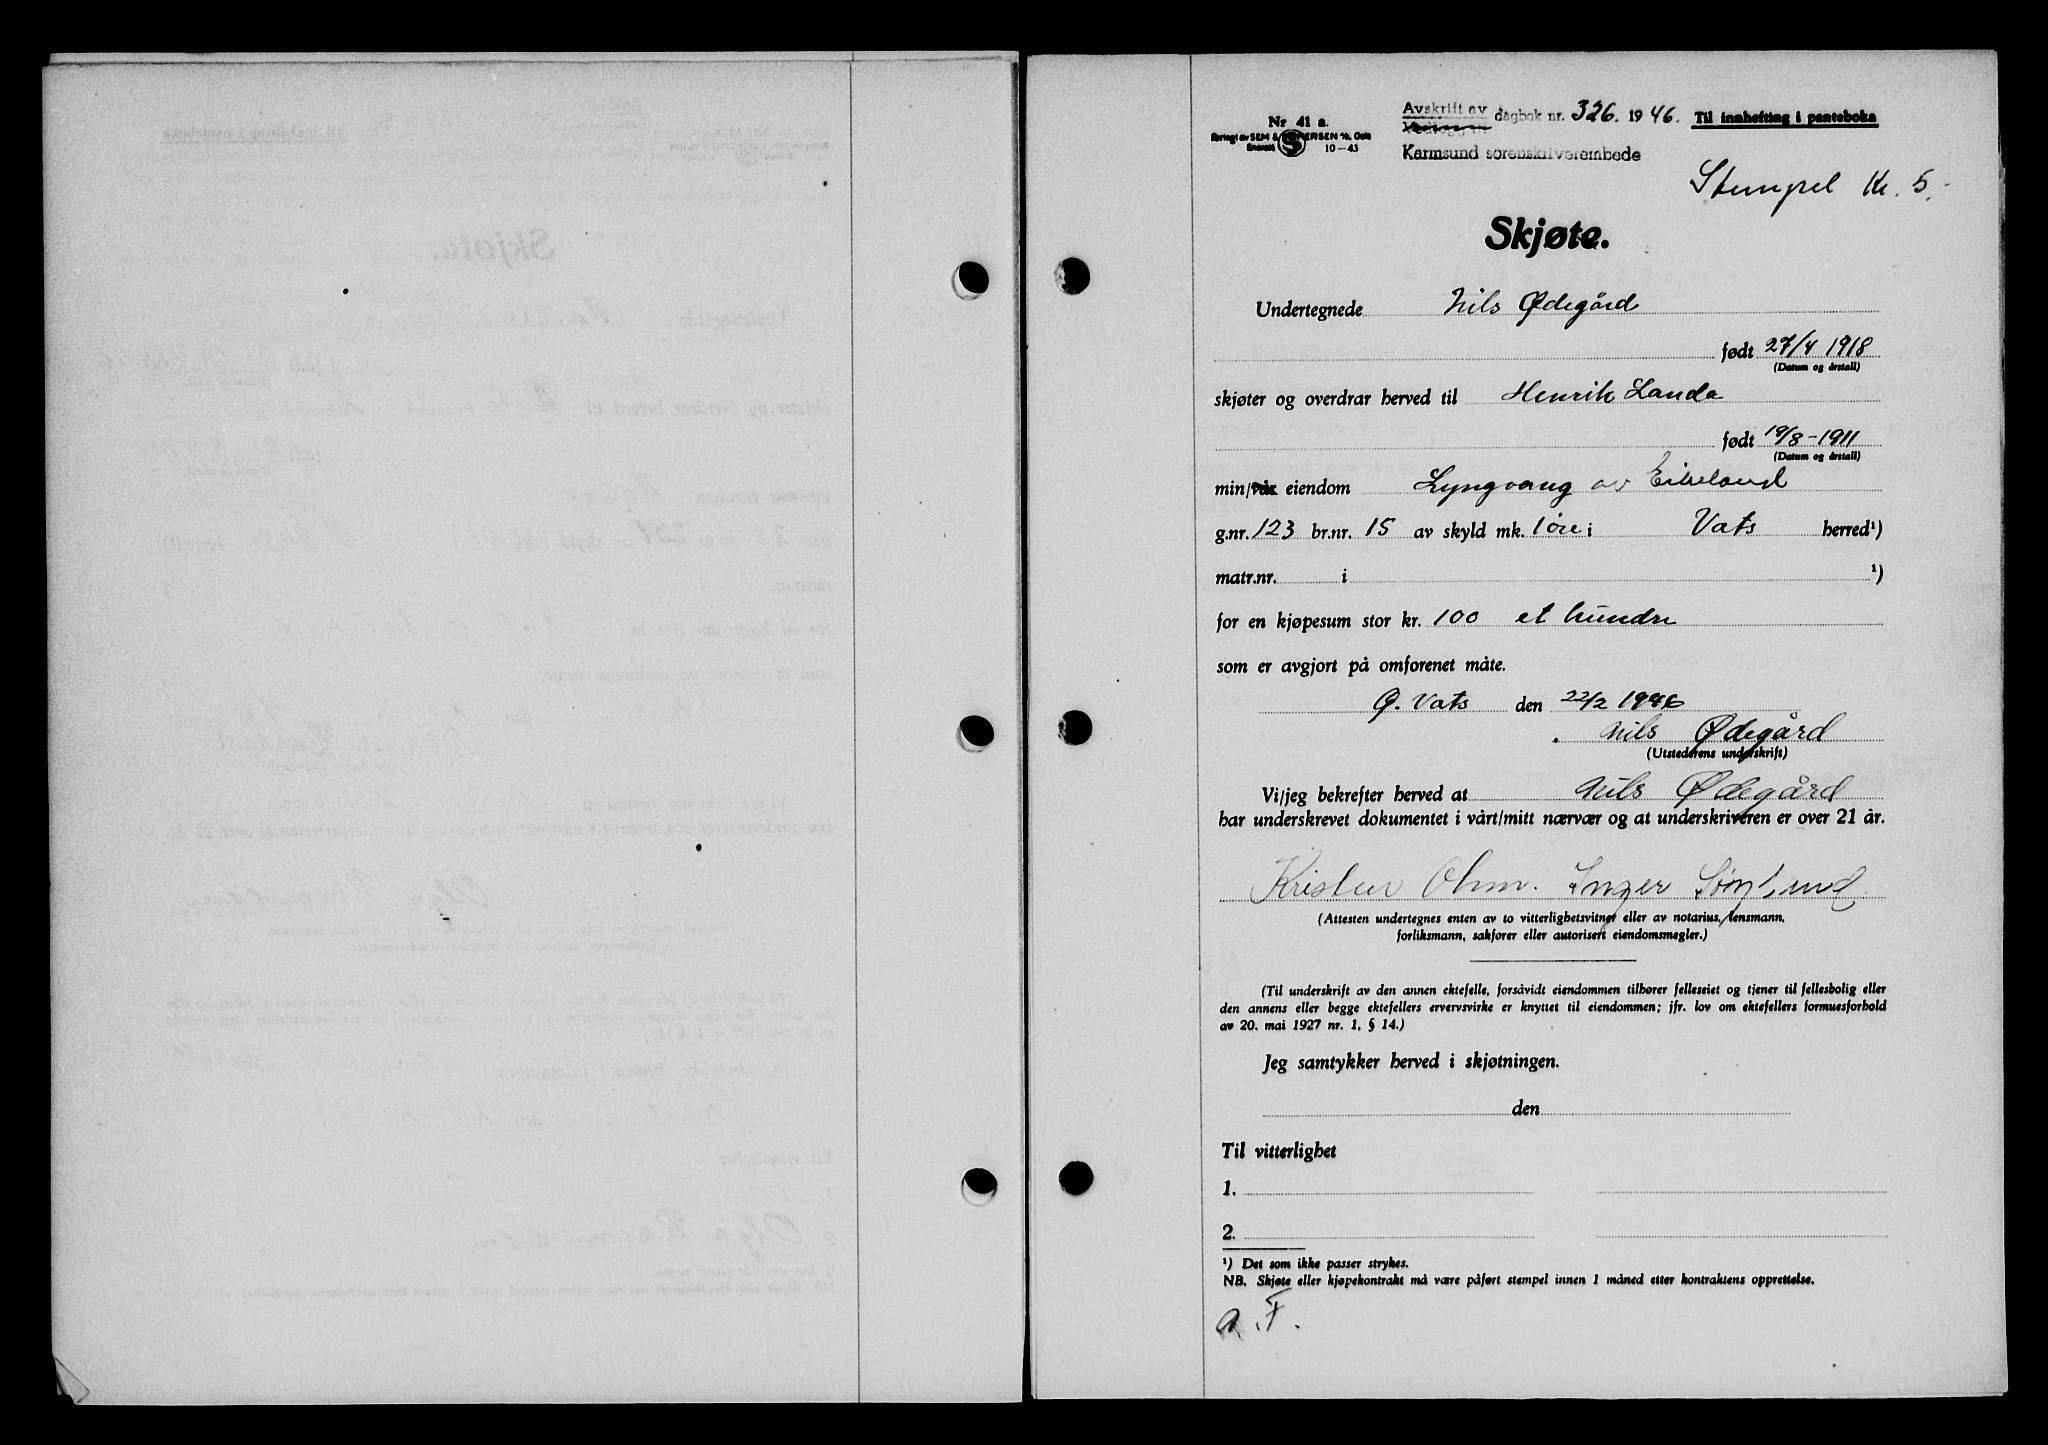 Nr 41 a.
Forlagt av SEM & STENERSEN A/S, Oslo
Enerett 10-43
Avskrift av
dagbok nr. 326. 1946. Til innhefting i panteboka
Karmsund sorenskriverembede
Stempel kr. 5.-
Skjøte.
Undertegnede Nils Ødegård
født 27/4 1918
(Datum og årstall)
skjøter og overdrar herved til Henrik Landa
født 19/8-1911
(Datum og årstall)
min/vår eiendom Lyngvang av Eikeland
g.nr. 123 br.nr. 15 av skyld mk. 1 øre i Vats herred¹)
matr.nr. i ¹)
for en kjøpesum stor kr. 100 et hundre
som er avgjort på omforenet måte.
Ø. Vats den 22/2 1946
Nils Ødegård
(Utstederens underskrift)
Vi/jeg bekrefter herved at Nils Ødegård
har underskrevet dokumentet i vårt/mitt nærvær og at underskriveren er over 21 år.
Kristen Ohm. Inger
(Attesten undertegnes enten av to vitterlighetsvitner eller av notarius, lensmann,
forliksmann, sakfører eller autorisert eiendomsmegler.)
(Til underskrift av den annen ektefelle, forsåvidt eiendommen tilhører felleseiet og tjener til fellesbolig eller
den annens eller begge ektefellers ervervsvirke er knyttet til eiendommen; jfr. lov om ektefellers formuesforhold
av 20. mai 1927 nr. 1, § 14.)
Jeg samtykker herved i skjøtningen.
den
Til vitterlighet
1.
2.
¹) Det som ikke passer strykes.
NB. Skjøte eller kjøpekontrakt må være påført stempel innen 1 måned etter kontraktens opprettelse.